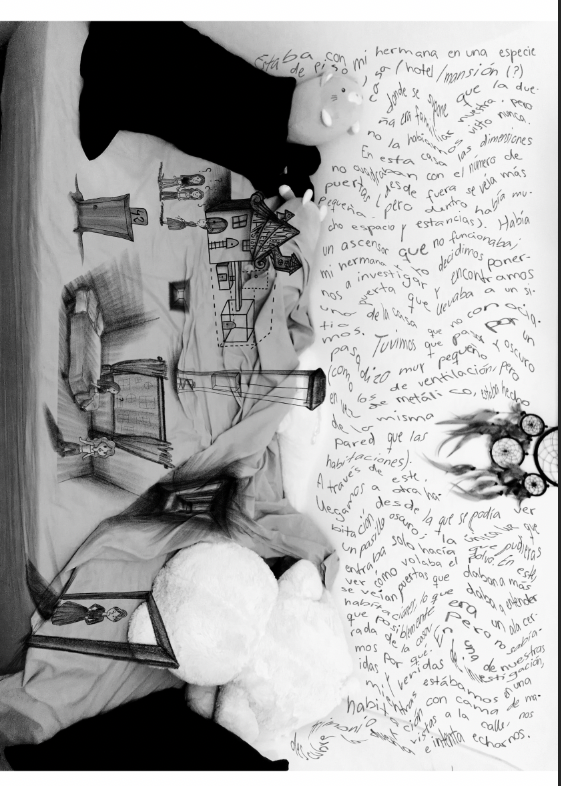 Estaba con mi hermana en una especie
de piso / hotel / mansión (?)
donde se supone que la due-
ña era familiar nuestra, pero
no la habíamos visto nunca.
En esta casa las dimensiones
no cuadraban con el número de
puertas (desde fuera se veía más
pequeña, pero dentro había mu-
cho espacio y estancias). Había
un ascensor que no funcionaba;
mi hermana y yo decidimos poner-
nos a investigar y encontramos
una puerta que llevaba a un si-
tio de la casa que no conocía-
mos. Tuvimos que pasar por un
pasadizo muy pequeño y oscuro
(como los de ventilación, pero
en vez de metálico, estaba hecho
de la misma
pared que las
habitaciones).
A través de este,
llegamos a otra ha-
bitación, desde la que se podía ver
un pasillo oscuro; la única luz que
entraba solo hacía que pudieras
ver como volaba el polvo. En este,
se veían puertas que daban a más
habitaciones, lo que daba a entender
que posiblemente era un ala cer-
rada de la casa. Pero no sabía-
mos por qué. En una de nuestras
idas y venidas de investigación,
mientras estábamos en una
habitación con cama de ma-
trimonio y vistas a la calle, nos
descubre la dueña e intenta echarnos.